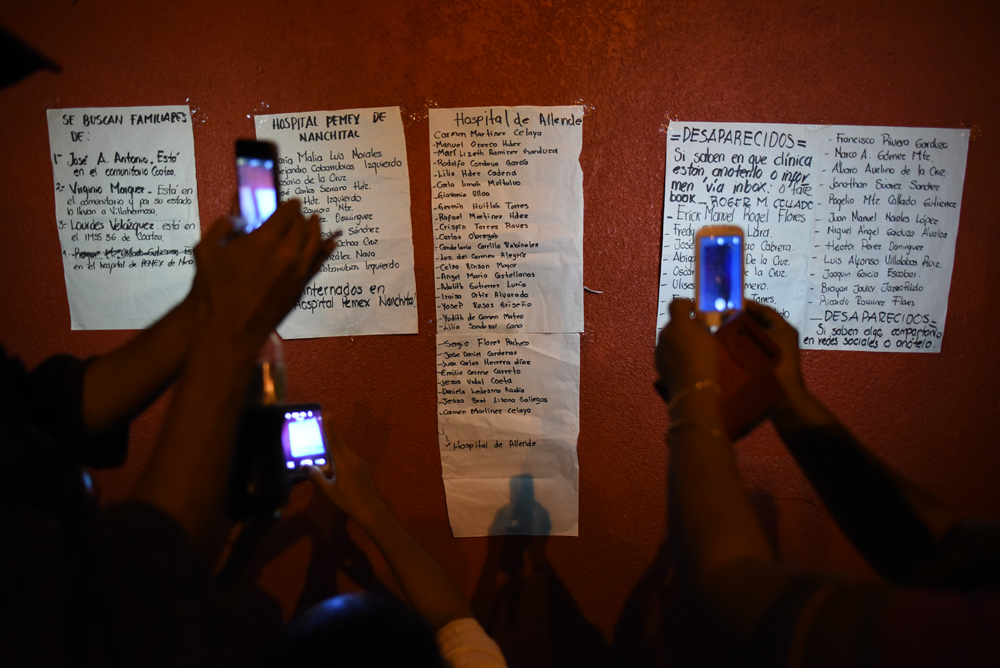 SE BUSCAN FAMILIARES
DE:
1- José A. Antonio. Está
en el comunitario Coatza.
2- Virginio Marquez. Está en
el comunitario y por su estado
lo llevan a Villahermosa.
3- Lourdes Velázquez. está en
el IMSS 36 de Coatza.
4-
en el hospital de PEMEX de
HOSPITAL PEMEX DE
NANCHITAL
Malia Luis Norales
Alejandro Cobambias Izquierdo
Rosario de la Cruz
José Carlos Serrano Hdz.
Hdz Izquierdo
Romero Mtz.
Dominguez
Sánchez
Ochoa Cruz
González Nava
Cobambias Izquierdo
Internados en
Hospital Pemex Nanchital
Hospital de Allende
Carmen Martinez Celaya
-Manuel Orozco Hdez
-Marí Lizeth Ramirez Garduza
-Rodolfo Cordova García
-Lilia Hdez Cadena
-Carla Limok Montalvo
-Giovania Ulloa
-Germín Huitían Torres
-Rafael Martinez Hdez
-Crispin Torres Roves
-Carlos Obregon
-Candelaria Carrillo Robinales
-Luz del Carmen Alegría
-Celso Rincon Mayor
-Angel Mario Castellanos
-Adalith Gutierrez Luría
-Iraisa Ortiz Alvarado
-Yosep Rosas Griseño
-Yodith de Carmen Mateo
-Lilia Sandoval Cano
-Sergio Flores Pacheco
-Jose Daniel Cardenas
-Juan Carlos Herrera díaz
-Emilio Cosme Carreto
-Jesus Vidal Caeta
-Daniela Ledesma
-Jessica Beat Lisana Gallegos
-Carmen Martinez Celaya
Hospital de Allende
=DESAPARECIDOS=
Si saben en que clinica
están, anótenlo o infor
men via inbox. o face
book - ROGER M COLLADO
-Erick Manuel Rogel Flores
Lara.
Cabrera.
De la Cruz.
de la Cruz.
Ulises Romero.
Torres.
- Francisco Rivera Garduza
- Marco A. Gómez Mtz.
- Alvaro Avelino de la Cruz.
- Jonathan Suarez Sanchez
- Rogelio Mtz Collado Gutierrez
- Juan Manuel Nagales López
- Miguel Angel Garduza Avalos
- Hector Perez Dominguez
- Luis Alfonso Villalobos Ruiz.
- Joaquin Garcia Escobar.
- Brayan Javier Jasso Pulido
- Ricardo Ramirez Flores
-DESAPARECIDOS-
Si saben algo, compartanlo
en redes sociales o anótelo.